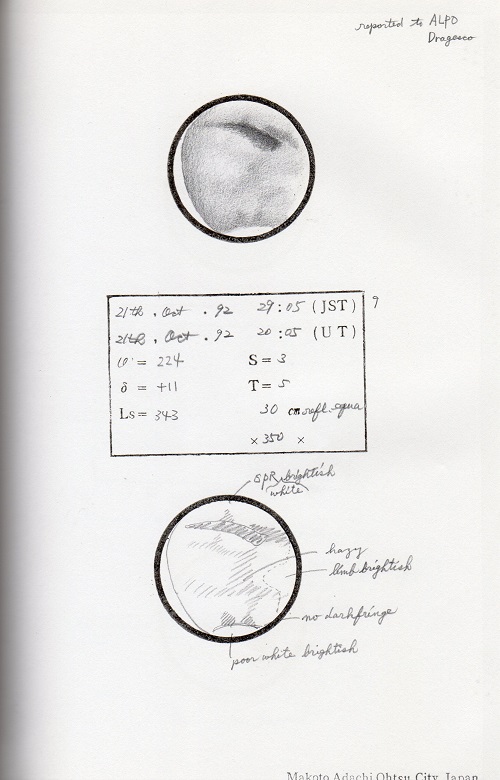 reported to ALPO
Dragesco
21th . Oct . 92 29:05 (JST) 9
21th . Oct . 92 20:05 (UT)
ω = 224 S = 3
δ = +11 T = 5
Ls = 343 30 cm refl. equa
× 350 ×
SPR brightish
white
hazy
limb brightish
no dark fringe
poor white brightish
Makoto Adachi Ohtsu City, Japan